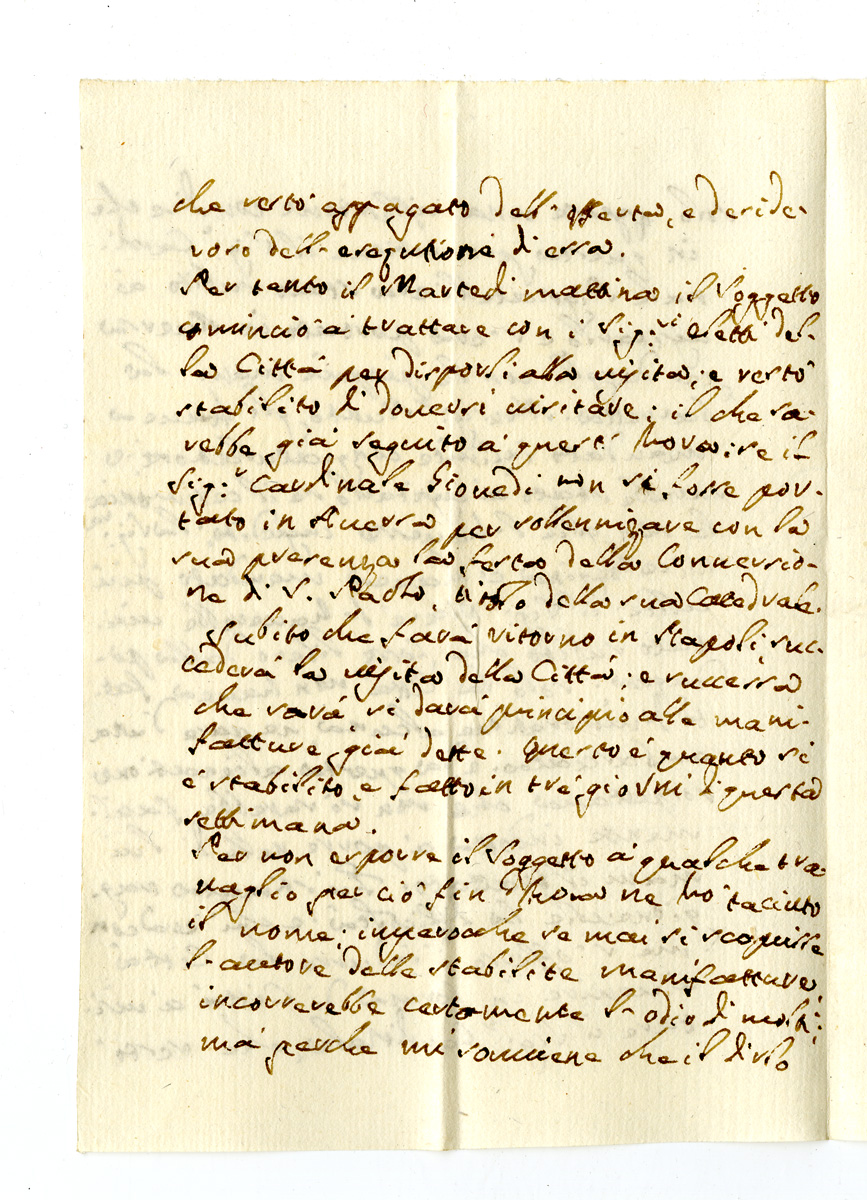 che restò appagato dell'offerta, e deside-
roso dell'esequtione di essa.
Per tanto il Martedi mattina il Soggetto
cominciò à trattare con i Sig:ri eletti del-
la Città per disporli alla visita; e restò
stabilito di doversi visitare; il che sa-
rebbe già seguito à quest' hora, se il
Sig:r Cardinale Giovedi non si fosse por-
tato in Aversa per sollennizare con la
sua presenza la festa della Conversio-
ne di S. Paolo, titolo della sua Catedrale.
Subito che farà ritorno in Napoli, suc-
cederà la visita della Città; e successa
che sarà, si darà principio alle mani-
fatture già dette. Questo è quanto si
è stabilito, e fatto in trè giorni di questa
settimana.
Per non esporre il Soggetto à qualche tra-
vaglio per ciò fin d'hora ne hò taciuto
il nome; imperoche se mai si scoprisse
l'autore delle stabilite manifatture,
incorrerebbe certamente l'odio di molti;
mà perche mi soviene che il dirlo